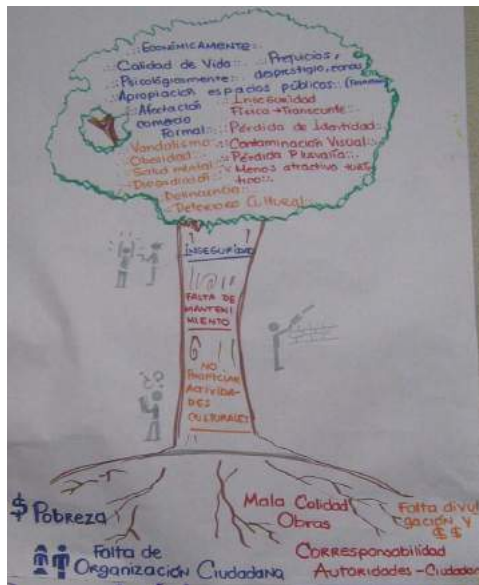 ..: Económicamente:..
..: Calidad de Vida:.. ..Prejuicios,
..Psicológicamente:.. desprestigio, zonas
Apropiación espacios públicos..
..: Afectación
comercio
Formal:..
..: Inseguridad
Física → Transeunte..
..: Pérdida de Identidad:..
Vandalismo:..
..: Contaminación Visual:..
..: Obesidad:..
..: Pérdida Plusvalía:..
..: Salud mental:..
..: Menos atractivo turís-
tico:..
..: Drogadicción:..
..: Delincuencia:..
..: Deterioro Cultural:..
INSEGURIDAD
FALTA DE
MANTENI
MIENTO
NO
PROPICIAR
ACTIVIDA-
DES
CULTURALES
$ Pobreza
Mala Calidad
Obras
Falta divul
gación y
$ $
Falta de
Organización Ciudadana
Corresponsabilidad
Autoridades - Ciudadan